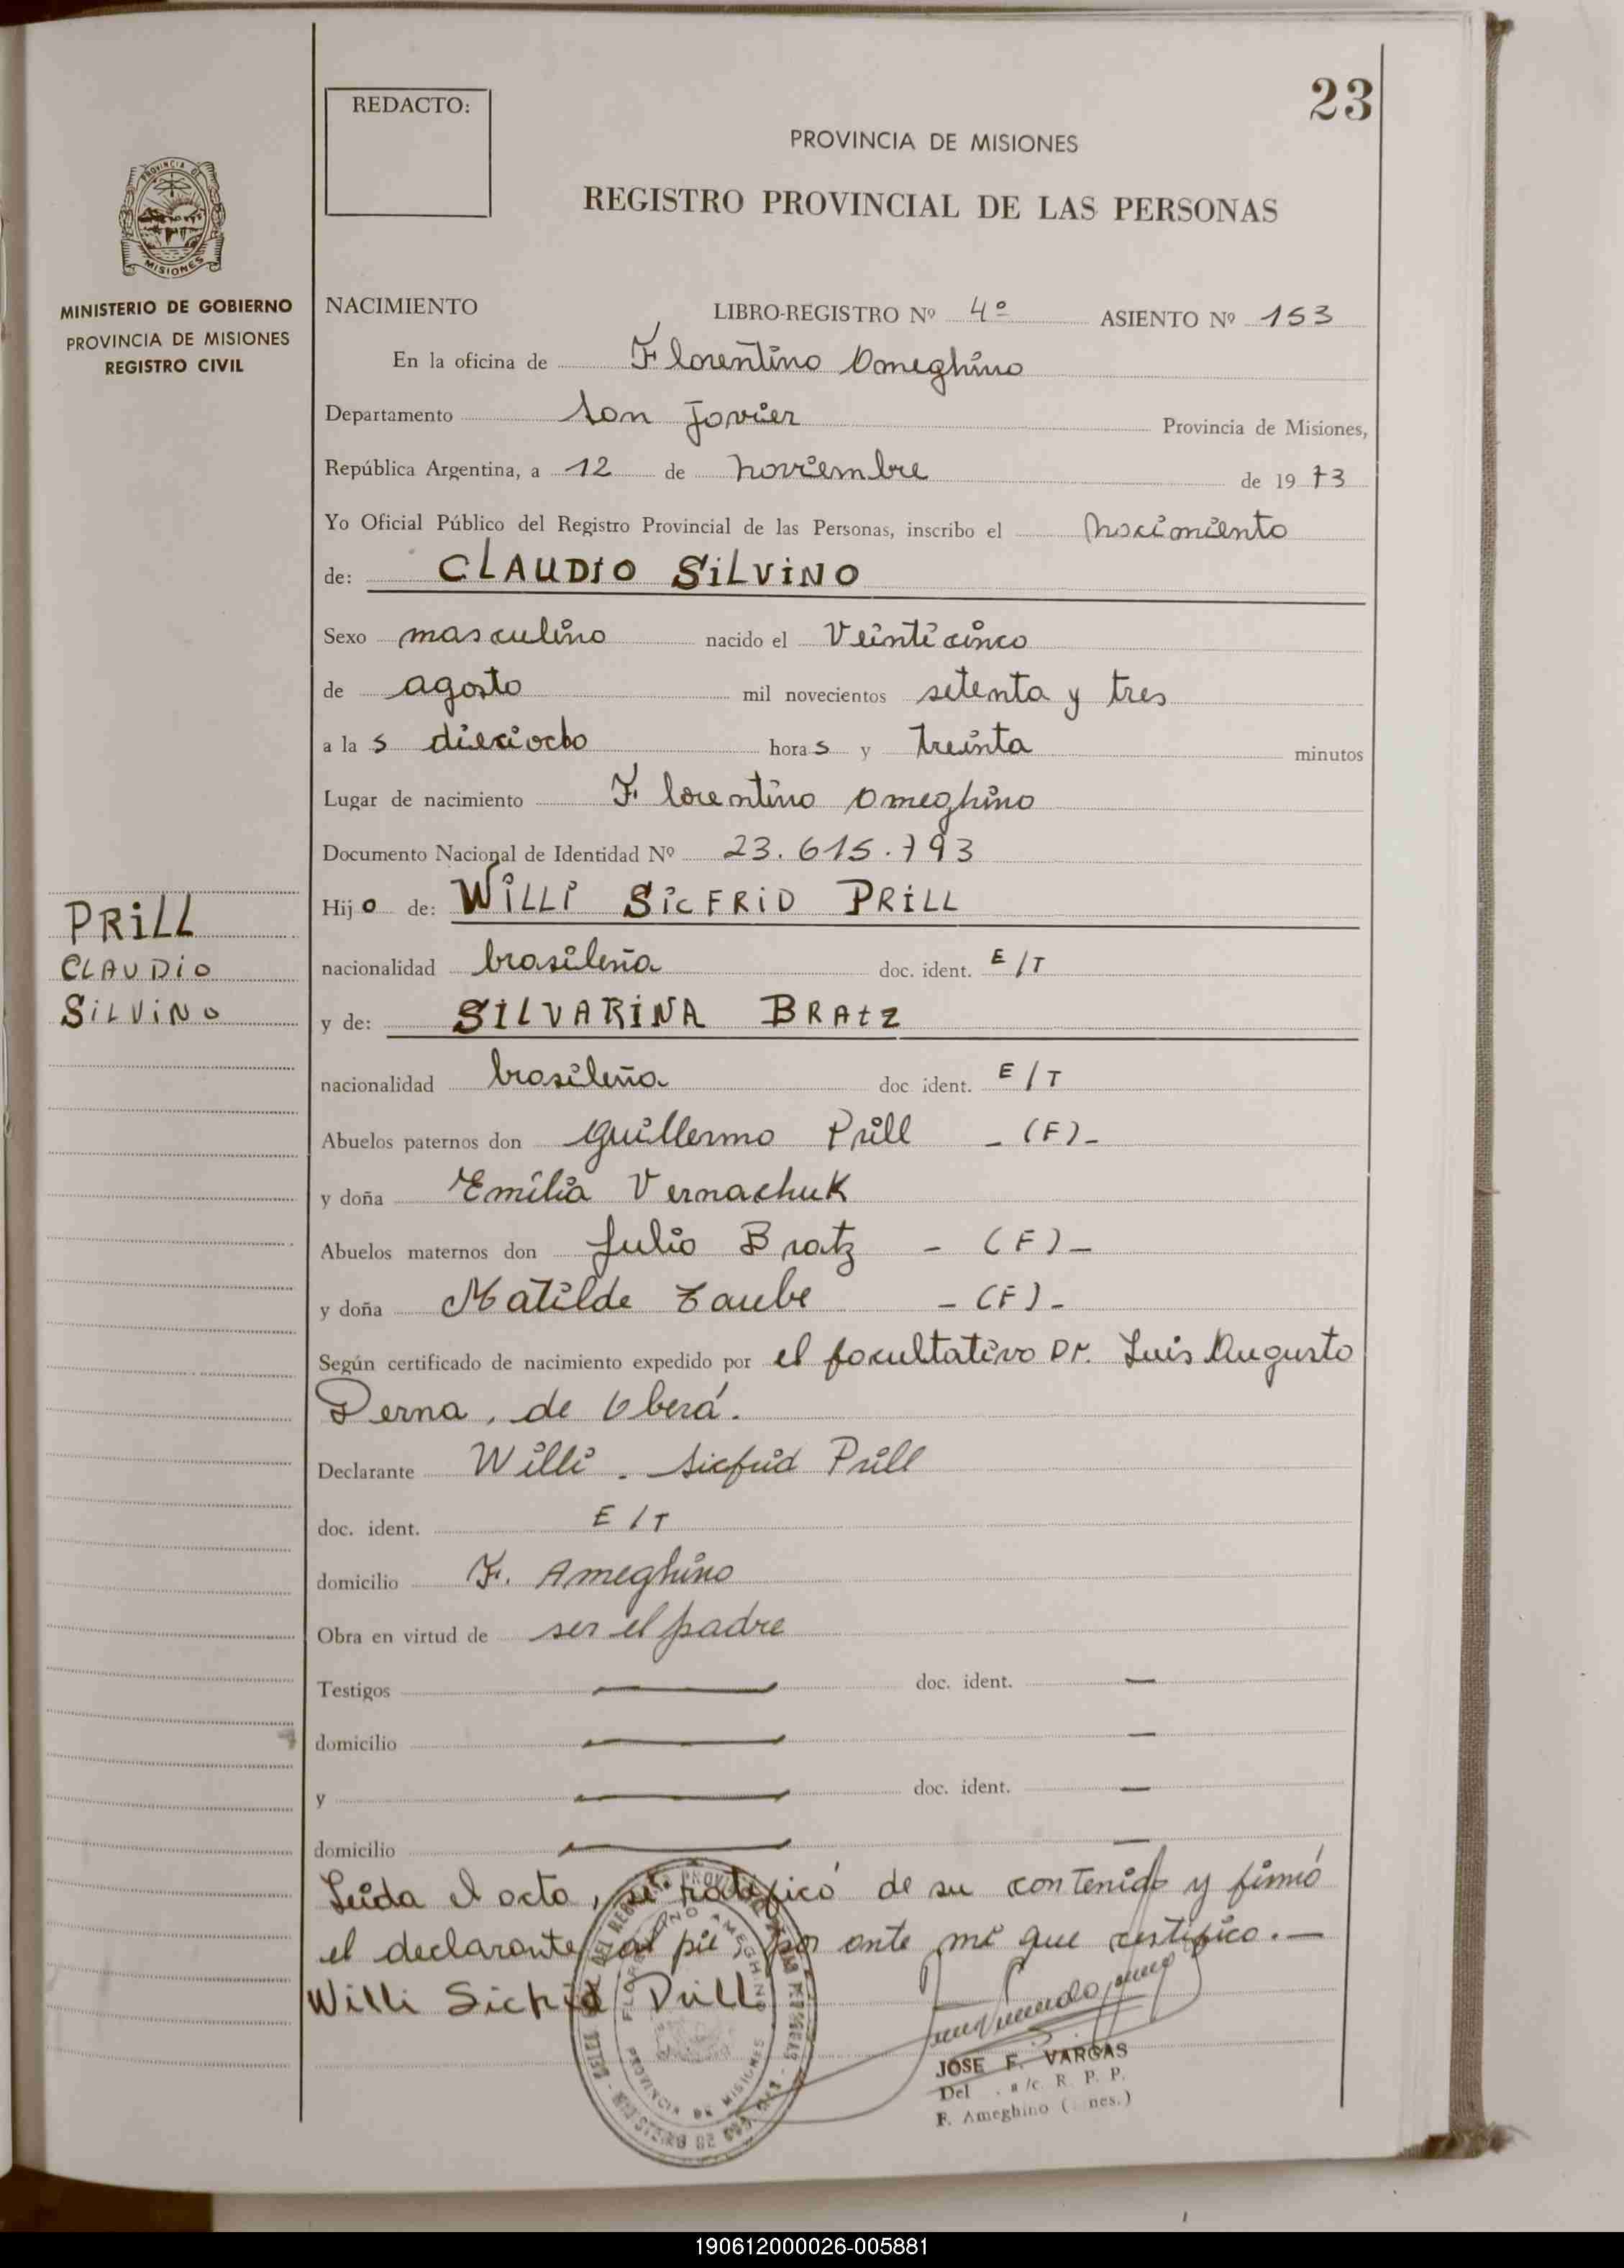 23
REDACTO:
PROVINCIA DE MISIONES
REGISTRO PROVINCIAL DE LAS PERSONAS
PROVINCIA DE
MISIONES
MINISTERIO DE GOBIERNO
PROVINCIA DE MISIONES
REGISTRO CIVIL
PRILL
CLAUDIO
SILVINO
NACIMIENTO LIBRO-REGISTRO Nº 4º ASIENTO Nº 153
En la oficina de Florentino Ameghino
Departamento San Javier Provincia de Misiones,
República Argentina, a 12 de noviembre de 1973
Yo Oficial Público del Registro Provincial de las Personas, inscribo el nacimiento
de: CLAUDIO SILVINO
Sexo masculino nacido el Veinticinco
de agosto mil novecientos setenta y tres
a las dieciocho horas y treinta minutos
Lugar de nacimiento Florentino Ameghino
Documento Nacional de Identidad Nº 23.615.793
Hijo de: WILLI SICFRID PRILL
nacionalidad brasileña doc. ident. E/T
y de: SILVARINA BRATZ
nacionalidad brasileña doc. ident. E/T
Abuelos paternos don Guillermo Prill - (F) -
y doña Emilia Vernachuk
Abuelos maternos don Julio Bratz - (F) -
y doña Matilde Taube - (F) -
Según certificado de nacimiento expedido por el facultativo Dr. Luis Augusto
Derna, de Oberá.
Declarante Willi. Sicfrid Prill
doc. ident. E/T
domicilio F. Ameghino
Obra en virtud de ser el padre
Testigos — doc. ident. —
domicilio — —
y — doc. ident. —
domicilio — —
Leida el acta, se ratificó de su contenido y firmó
el declarante al pie, por ante mi que certifico. —
Willi Sicfrid Prill
FLORENTINO AMEGHINO
PROVINCIA DE MISIONES
JOSE F. VARGAS
Del . a/c. R. P. P.
F. Ameghino ( nes.)
190612000026-005881